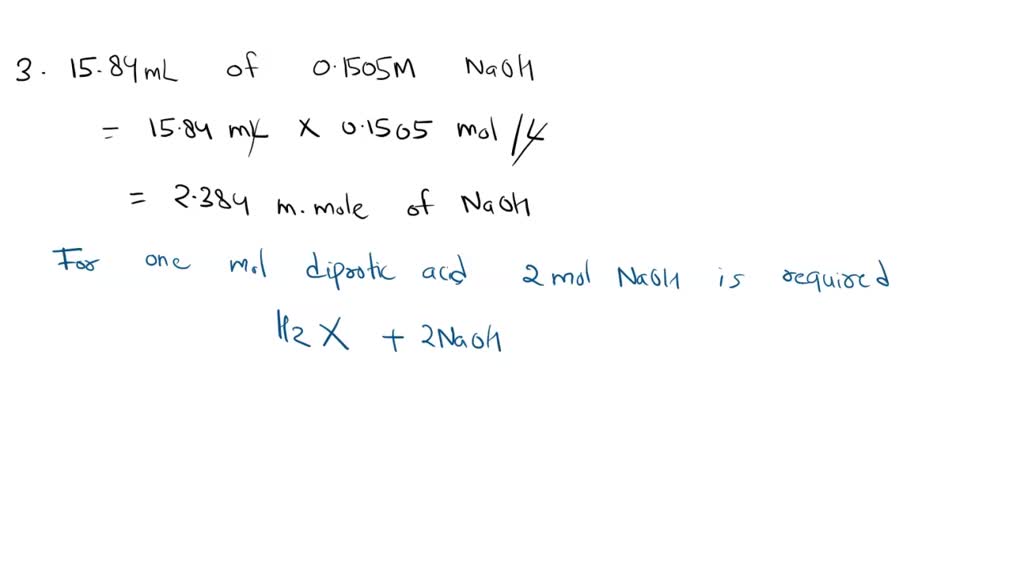 3. 15.84mL of 0.1505M NaOH
= 15.84 mL X 0.1505 mol/L
= 2.384 m.mole of NaOH
For one mol diprotic acid 2 mol NaOH is required
H2X + 2NaOH